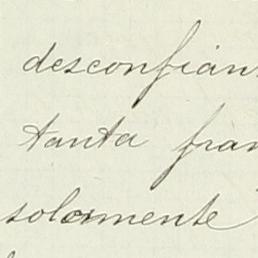 desconfian
tanta fran
solamente